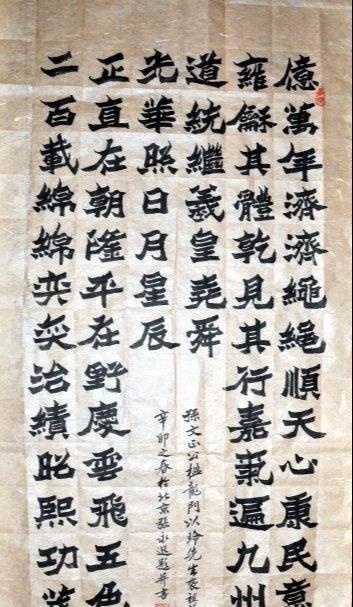 億萬年濟濟繩繩順天心康民意
雍龢其體乾見其行嘉氣遍九州
道統繼羲皇堯舜
二百載綿綿奕奕治績昭熙功
正直在朝隆平在野慶雲飛五色
光華照日月星辰
孫文正公楹龍門以玲先生
辛卯之春於北京張永退題并書